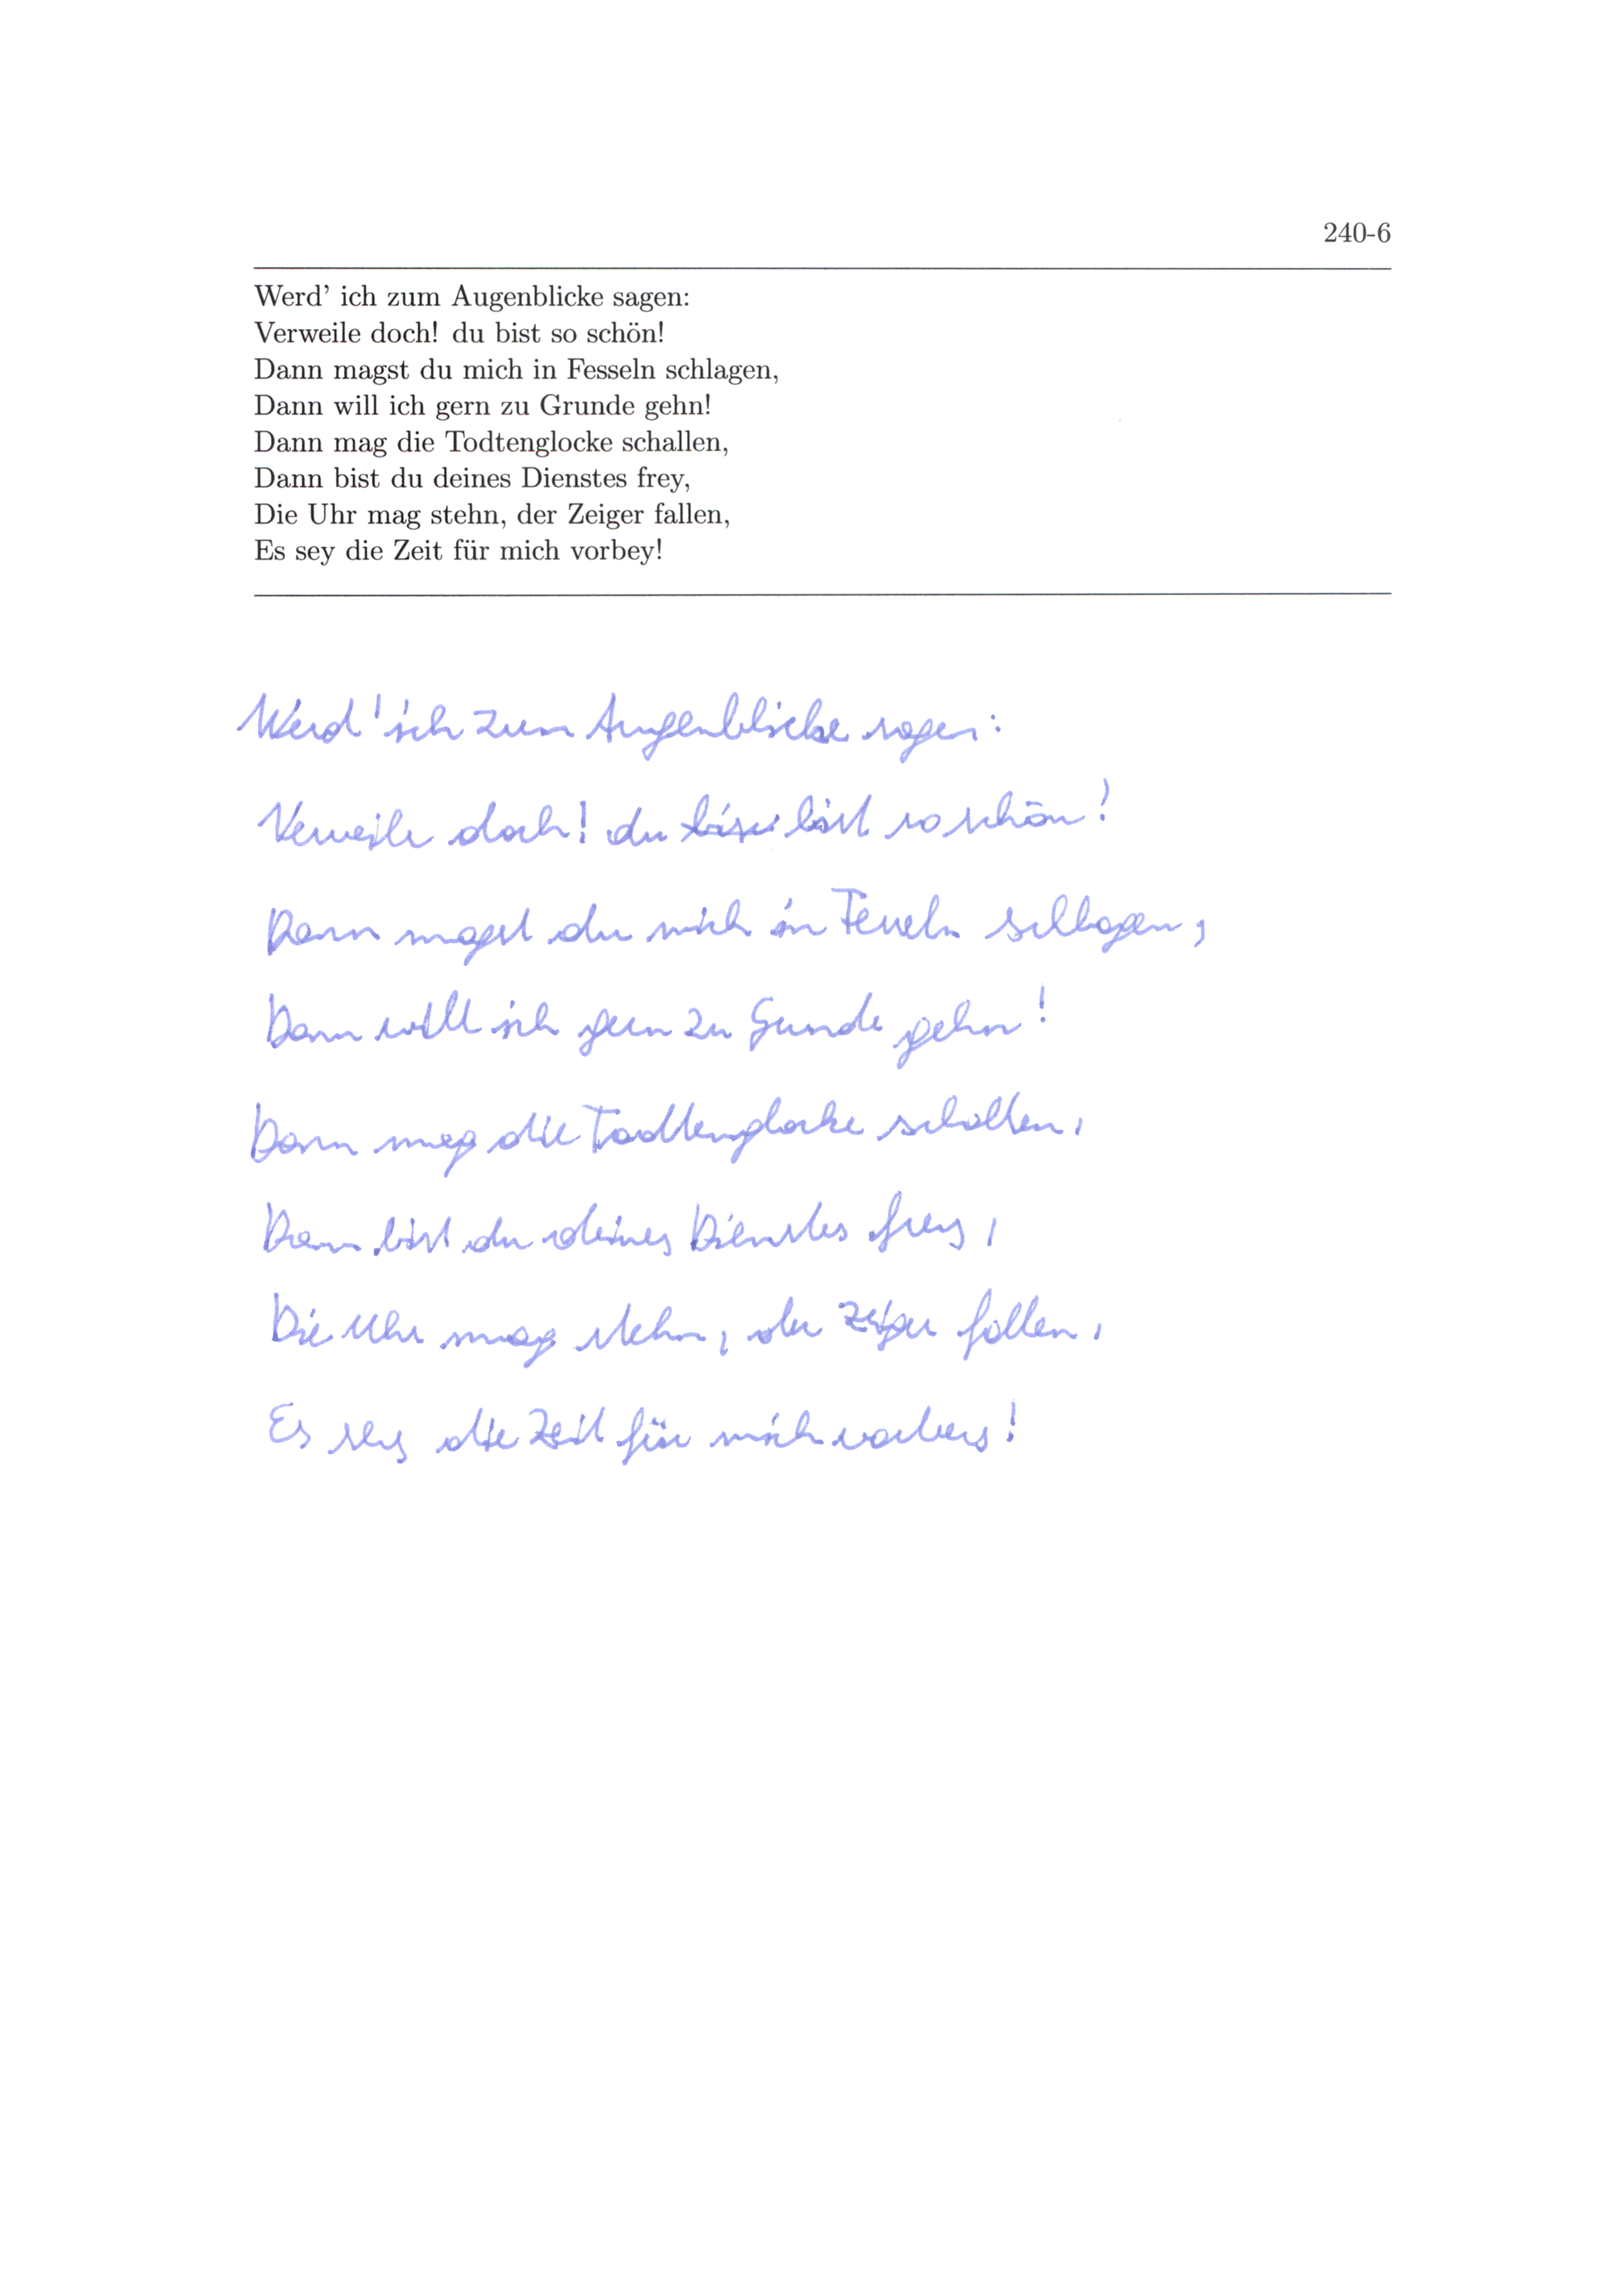 240-6
Werd' ich zum Augenblicke sagen:
Verweile doch! du bist so schön!
Dann magst du mich in Fesseln schlagen,
Dann will ich gern zu Grunde gehn!
Dann mag die Todtenglocke schallen,
Dann bist du deines Dienstes frey,
Die Uhr mag stehn, der Zeiger fallen,
Es sey die Zeit für mich vorbey!
Werd' ich zum Augenblicke sagen:
Verweile doch! du bist so schön!
Dann magst du mich in Fesseln schlagen,
Dann will ich gern zu Grunde gehn!
Dann mag die Todtenglocke schallen,
Dann bist du deines Dienstes frey,
Die Uhr mag stehn, der Zeiger fallen,
Es sey die Zeit für mich vorbey!